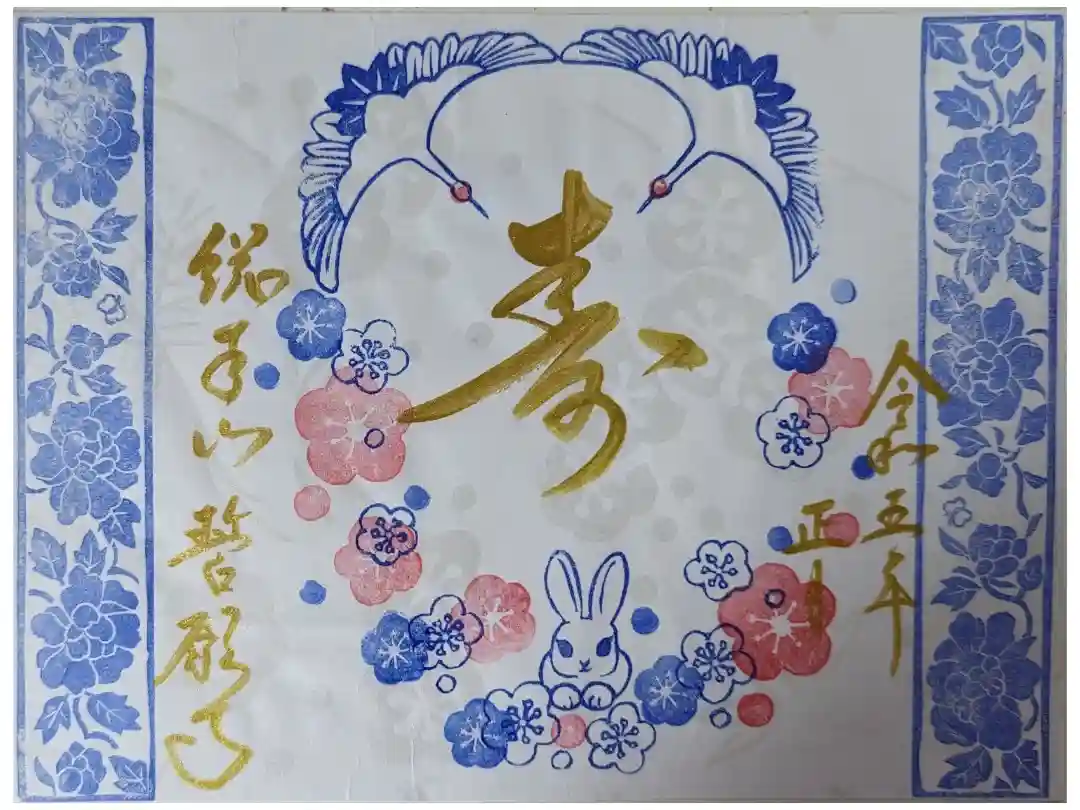 令和五年
正月
寿
総本山 誓願寺